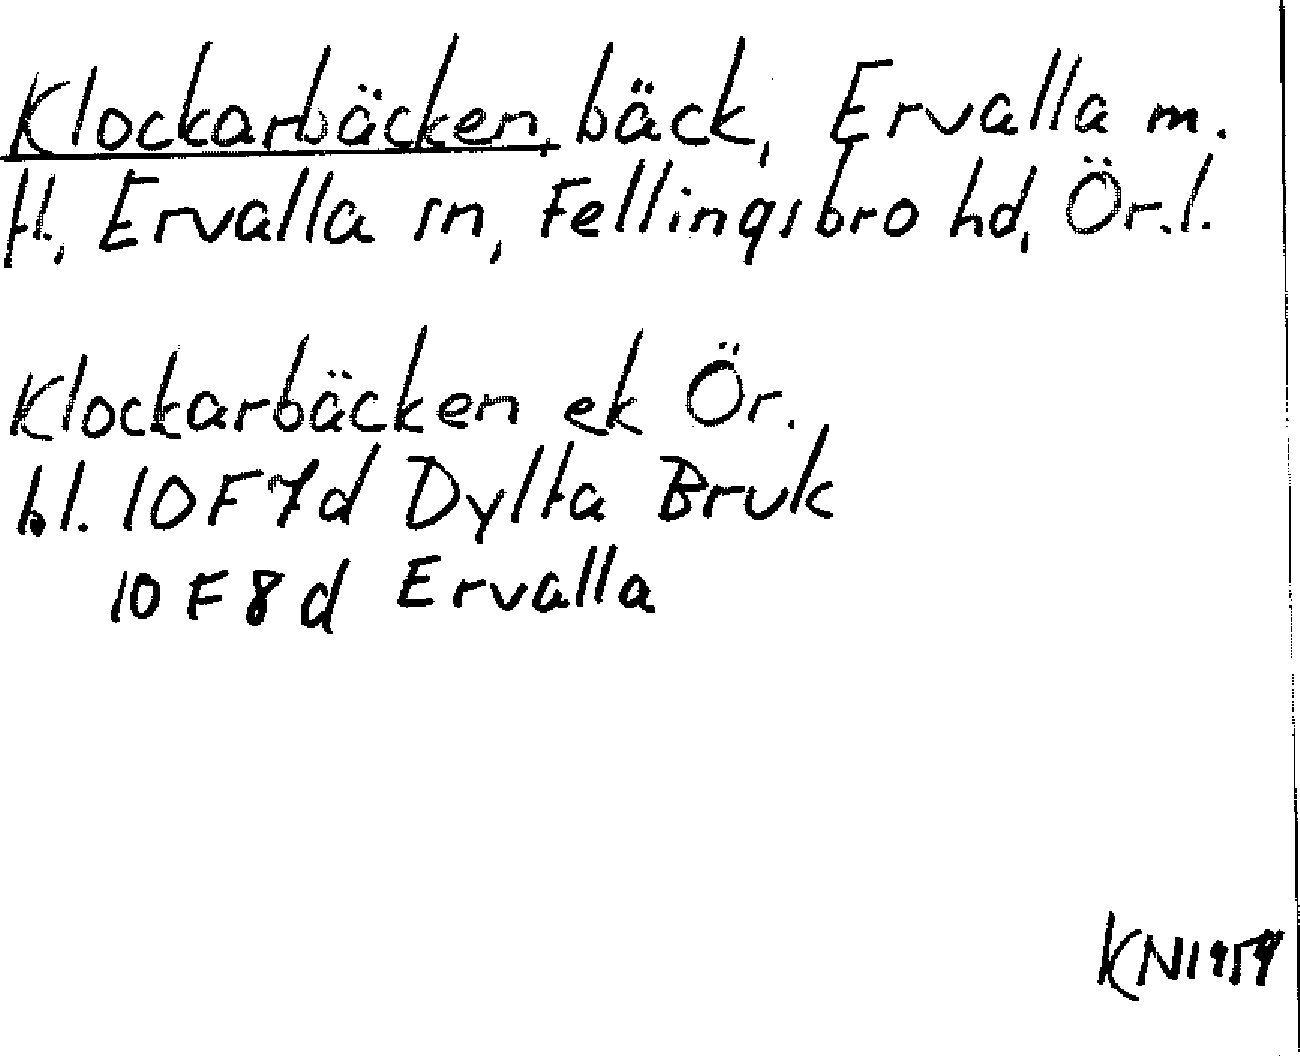 Klockarbäcken, bäck, Ervalla m.
fl., Ervalla sn, Fellingsbro hd, Ör.l.
Klockarbäcken ek Ör.
bl. 10F7d Dylta Bruk
10F8d Ervalla
KN1959